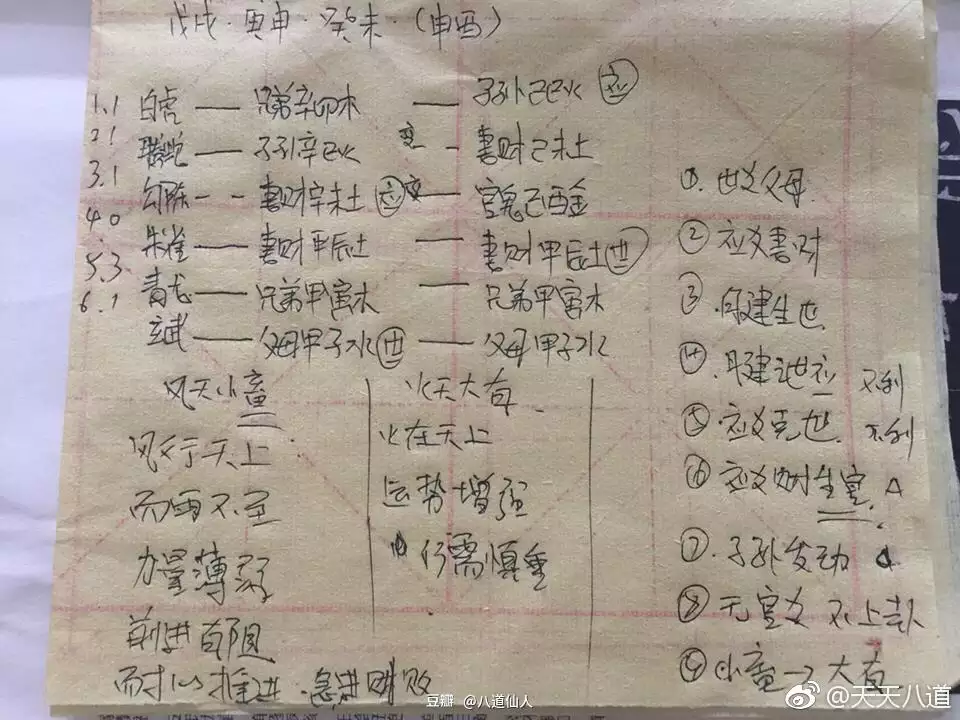 戊戌·庚申·癸未(申酉)
1.1 白虎 — 兄弟辛卯木 — 子孙己巳火 应
2.1 螣蛇 — 子孙辛巳火 变 - 妻财己未土
3.1 勾陈 - - 妻财辛未土 应 变 — 官鬼己酉金
4.0 朱雀 — 妻财甲辰土 — 妻财甲辰土 世
5.3 青龙 — 兄弟甲寅木 — 兄弟甲寅木
6.1 玄武 — 父母甲子水 世 — 父母甲子水
风天小畜
风行天上
而雨不至
力量薄弱
前进有阻
而 推进·急进则败
火天大有
火在天上
运势增强
仍需慎重
①. 世爻父母
② 应爻妻财
③ 建生世
④. 月建 应 不利
⑤ 应爻克世. 不利
⑥ 应爻财生官. △
⑦. 子孙发动 △
⑧ 无官爻 不上卦
⑨ 小畜→大有
豆瓣 @八道仙人
@天天八道